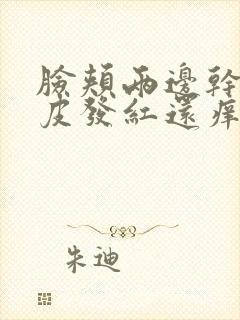 臉頰兩邊幹
皮發紅還痒
朱迪